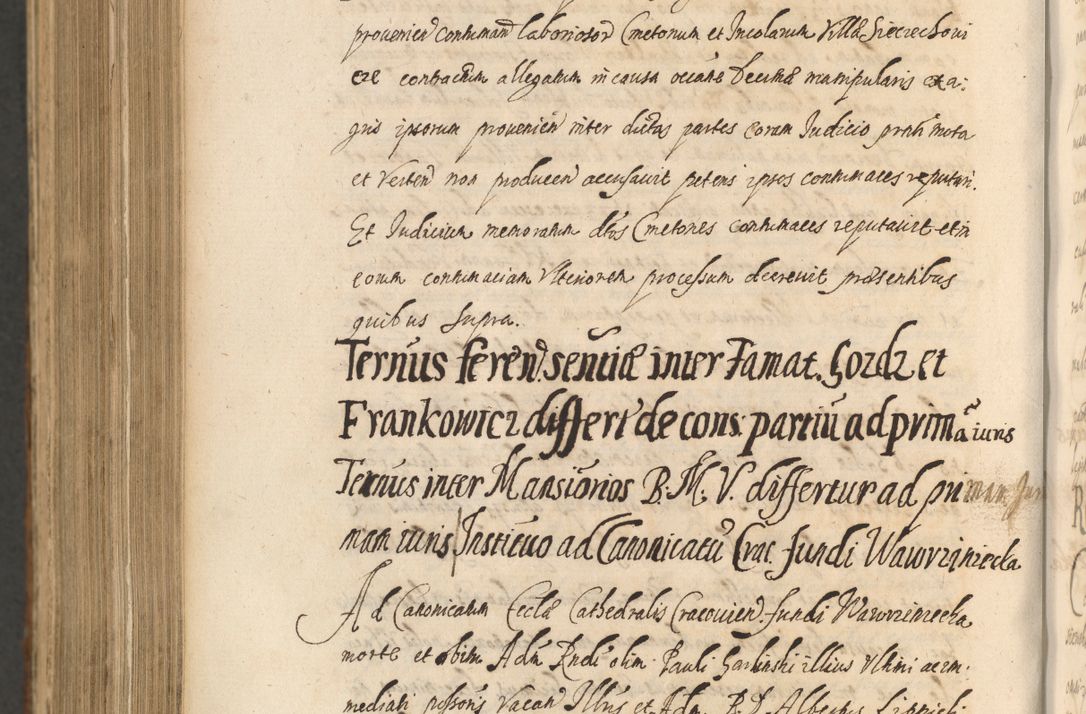 provenien contuman laboriosor Cmetonum et Incolarum Villæ Sieciechovi
cze contractum allegatum in causa occãne Decimæ manipularis ex a:
gris ipsorum provenien inter dictas partes coram Judicio prãti mota
et verten non producen accusavit petens ipsos contumaces reputari.
Et Judicium memoratum dtos Cmetones contumaces reputavit et in
eorum contumaciam ulteriorem processum decrevit præsentibus
quibus supra.
Ternus feren. sentiæ inter Famat. Gozdz et
Frankowicz differt de cons. partiu ad primã iuris
Ternus inter Mansionios B. M. V. differtur ad pri
mam iuris Institutio ad Canonicatu Crac. fundi Wawrziniecka
Ad Canonicatum Eccłæ Cathedralis Cracovien. fundi Wawrziniecka
morte et obitu Adm Rndi olim Pauli illius ultimi ac im
mediati possoris vacan Illris et Adm. R. D. Albertus